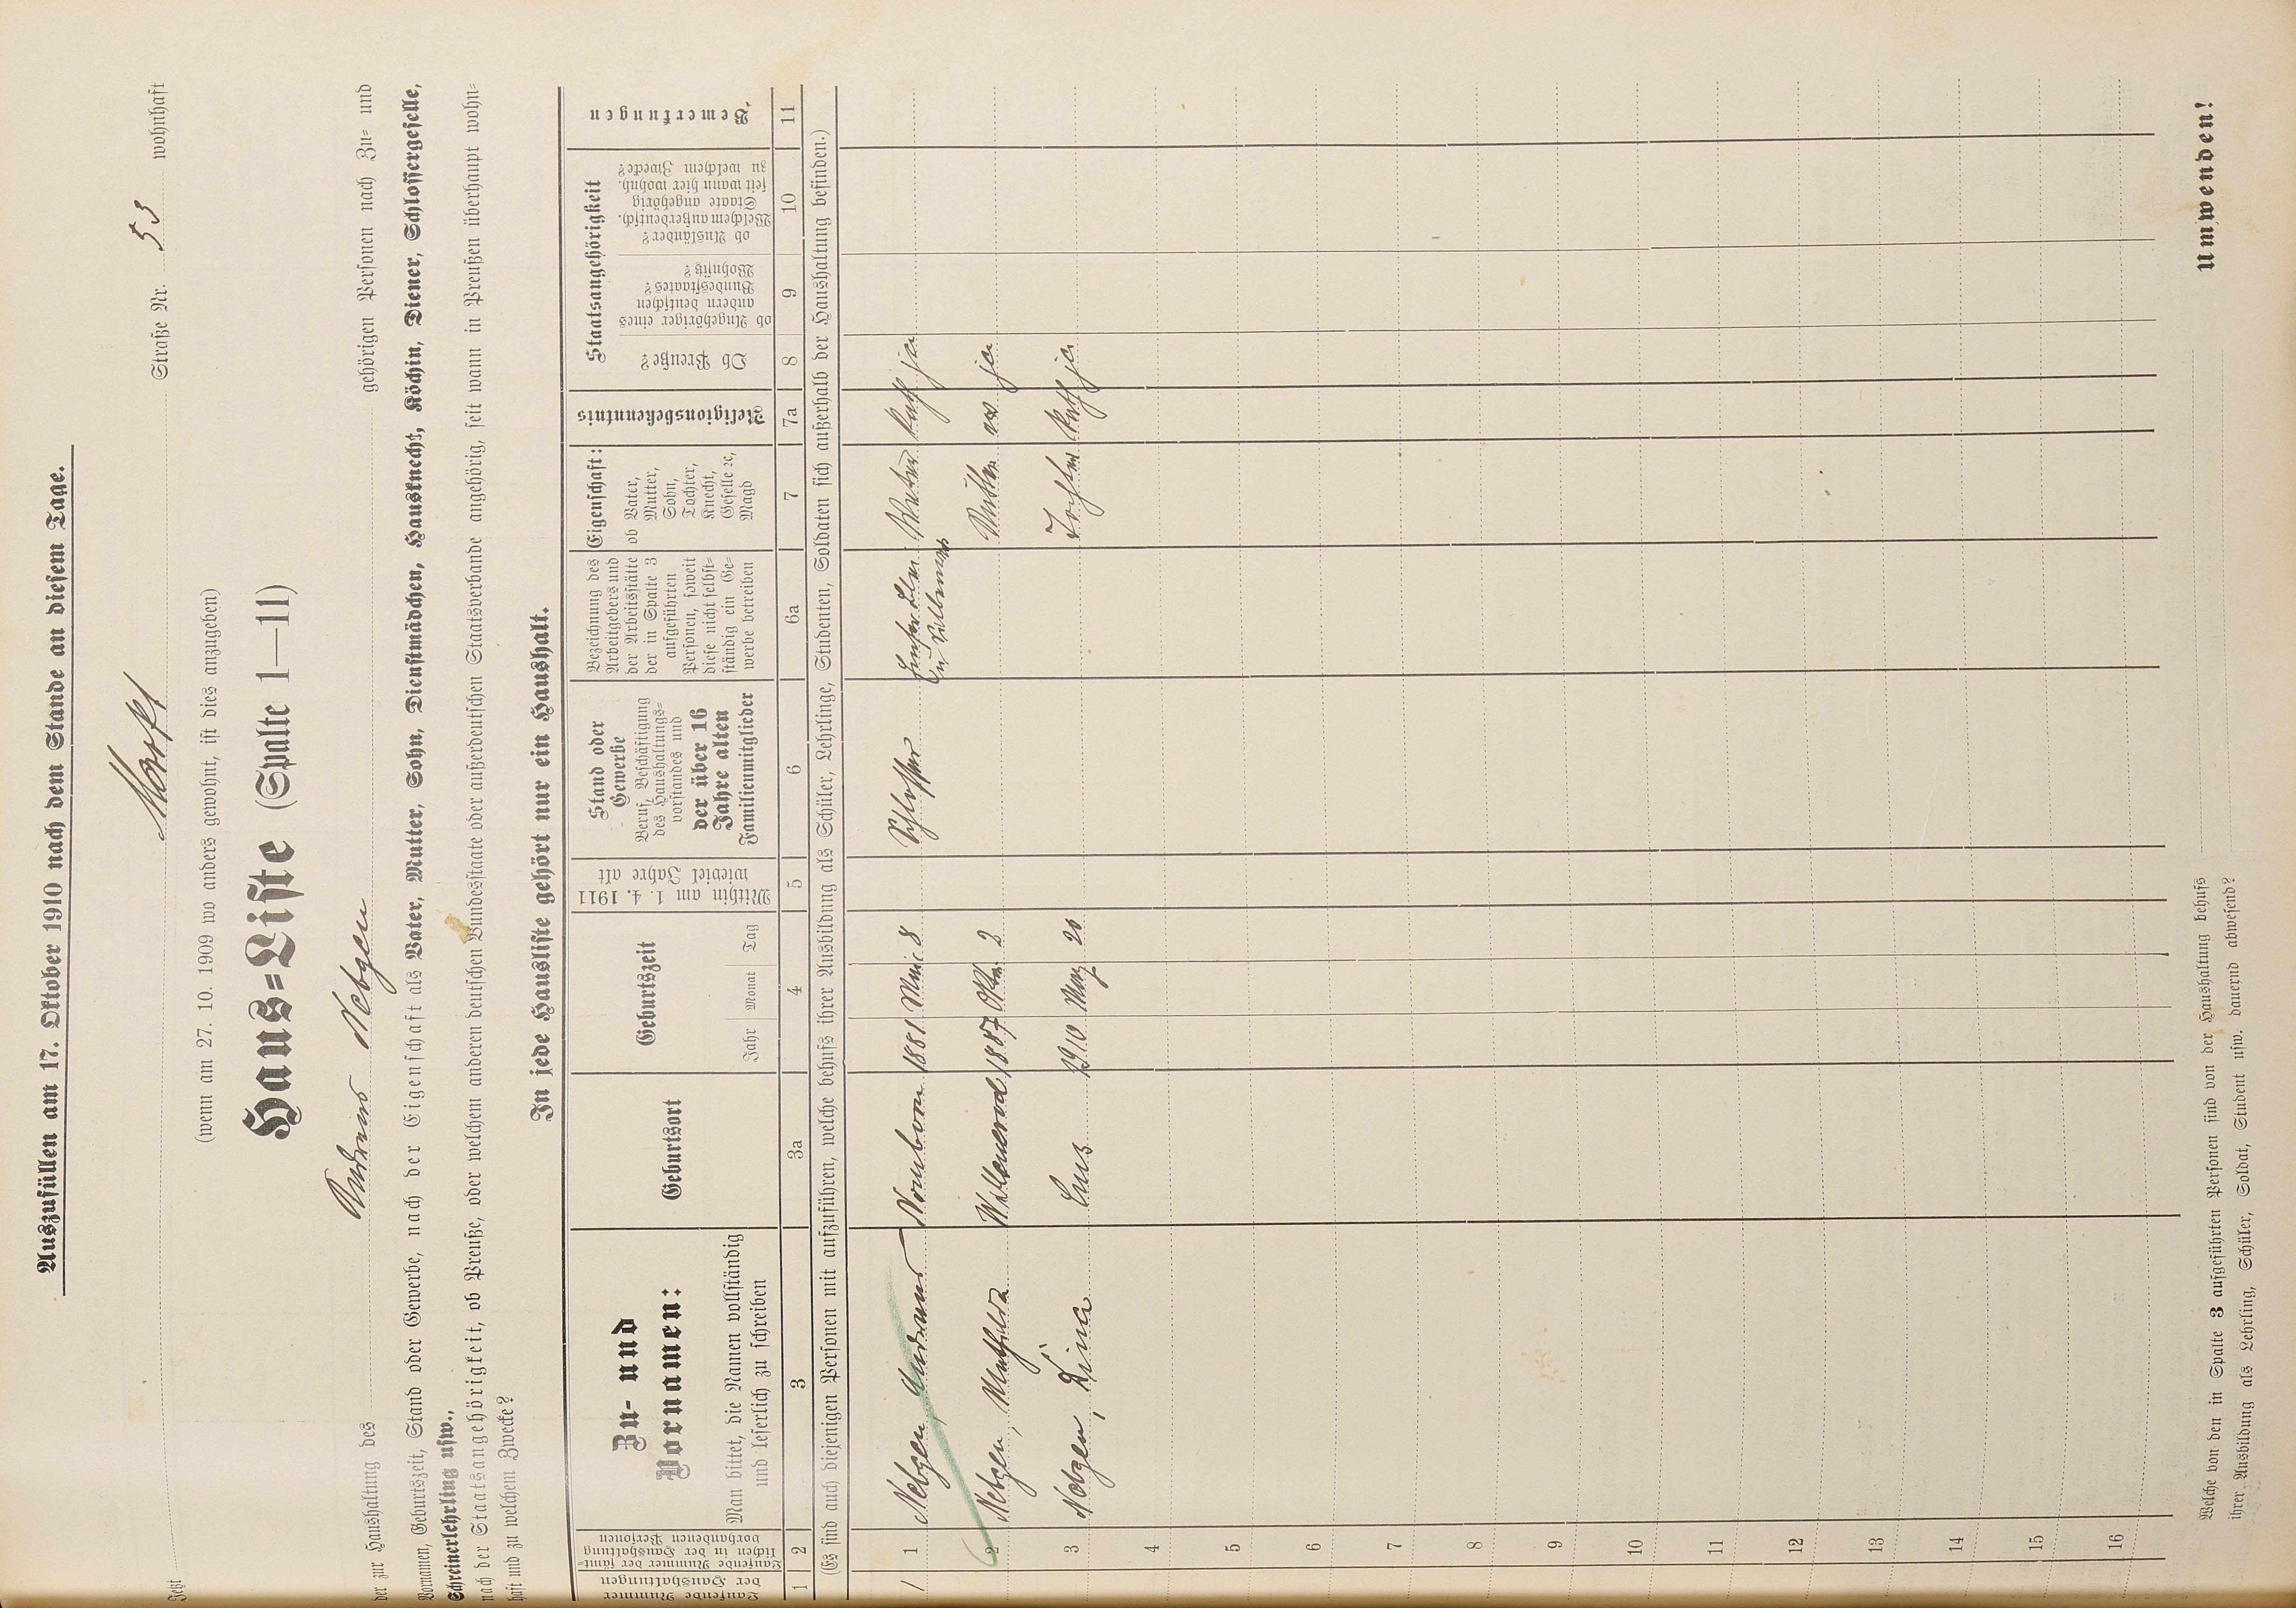 Auszufüllen am 17. Oktober 1910 nach dem Stande an diesem Tage.
Jetzt Markt Straße Nr. 53 wohnhaft
(wenn am 27. 10. 1909 wo anders gewohnt, ist dies anzugeben)
Haus=Liste (Spalte 1—11)
der zur Haushaltung des Andreas Nebgen gehörigen Personen nach Zu= und
Vornamen, Geburtszeit, Stand oder Gewerbe, nach der Eigenschaft als Vater, Mutter, Sohn, Dienstmädchen, Hausknecht, Köchin, Diener, Schlossergeselle,
Schreinerlehrling usw.,
nach der Staatsangehörigkeit, ob Preuße, oder welchem anderen deutschen Bundesstaate oder außerdeutschen Staatsverbande angehörig, seit wann in Preußen überhaupt wohn=
haft und zu welchem Zwecke?
In jede Hausliste gehört nur ein Haushalt.
Laufende Nummer der Haushaltungen
Laufende Nummer der sämt=
lichen in der Haushaltung
vorhandenen Personen
Zu- und
Vornamen:
Man bittet, die Namen vollständig
und leserlich zu schreiben
Geburtsort
Geburtszeit
Jahr Monat Tag
Mithin am 1. 4. 1911
wieviel Jahre alt
Stand oder
Gewerbe
Beruf, Beschäftigung
des Haushaltungs=
vorstandes und
der über 16
Jahre alten
Familienmitglieder
Bezeichnung des
Arbeitgebers und
der Arbeitsstätte
der in Spalte 3
aufgeführten
Personen, soweit
diese nicht selbst=
ständig ein Ge=
werbe betreiben
Eigenschaft:
ob Vater,
Mutter,
Sohn,
Tochter,
Knecht,
Geselle ꝛc,
Magd
Religionsbekenntnis
Staatsangehörigkeit
Ob Preuße?
ob Angehöriger eines
andern deutschen
Bundesstaates?
Wohnsitz?
ob Ausländer?
Welchem außerdeutsch.
Staate angehörig
seit wann hier wohnh.
zu welchem Zwecke?
Bemerkungen
1 2 3 3a 4 5 6 6a 7 7a 8 9 10 11
(Es sind auch diejenigen Personen mit aufzuführen, welche behufs ihrer Ausbildung als Schüler, Lehrlinge, Studenten, Soldaten sich außerhalb der Haushaltung befinden.)
1 1 Nebgen, Andreas Nornborn 1881 8 Schlosser Vater kath ja
2 Nebgen, Mathilda 1887 Oktr. 2 Mutter ev ja
3 Nebgen, Lina Ems 1910 May 20 Tochter kath ja
4
5
6
7
8
9
10
11
12
13
14
15
16
Welche von den in Spalte 3 aufgeführten Personen sind von der Haushaltung behufs
ihrer Ausbildung als Lehrling, Schüler, Soldat, Student usw. dauernd abwesend?
Umwenden!